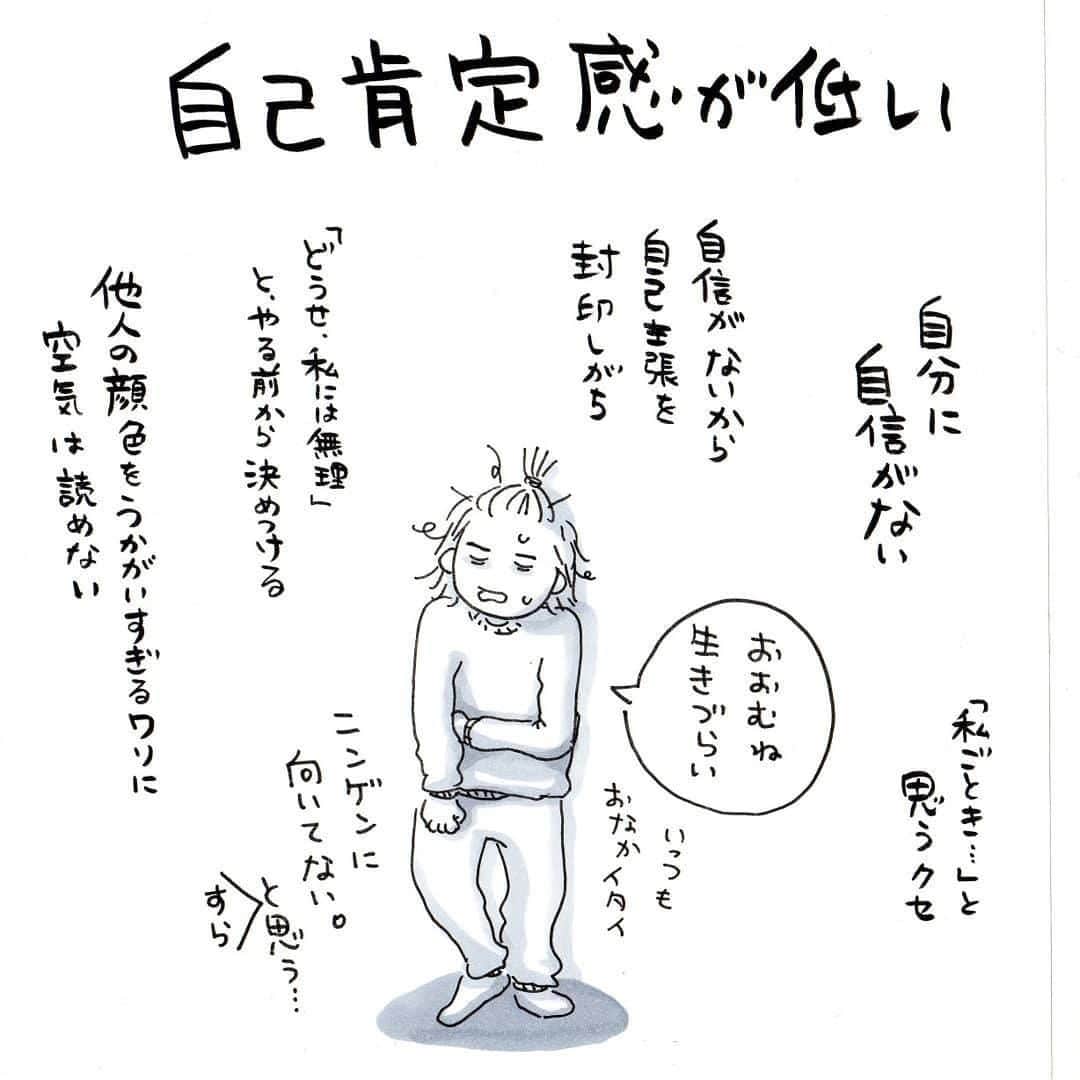 自己肯定感が低い
自分に
自信がない
自信がないから
自己主張を
封印しがち
「どうせ、私には無理」
と、やる前から決めつける
他人の顔色をうかがいすぎるワリに
空気は読めない
「私ごとき…」と
思うクセ
おおむね
生きづらい
いつも
おなかイタイ
ニンゲンに
向いてない。
と思う…
すら